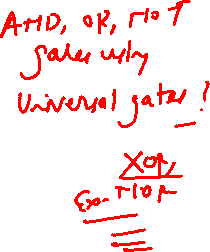 AND, OR, NOT
gates using
Universal gates!
XOR,
Ex-NOR